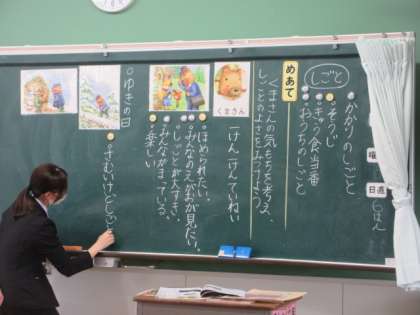 しごと
かかりのしごと
・そうじ
・きゅう食当番
・おうちのしごと
めあて
くまさんの気もちを考え、
しごとのよさをみつけよう。
くまさん
一けん一けんていねい
・ほめられたい。
・みんなのえがおが見たい。
・しごとが大すき。
みんながまっている。
・楽しい
・ゆきの日
・さむいけど、しごと
曜
日直